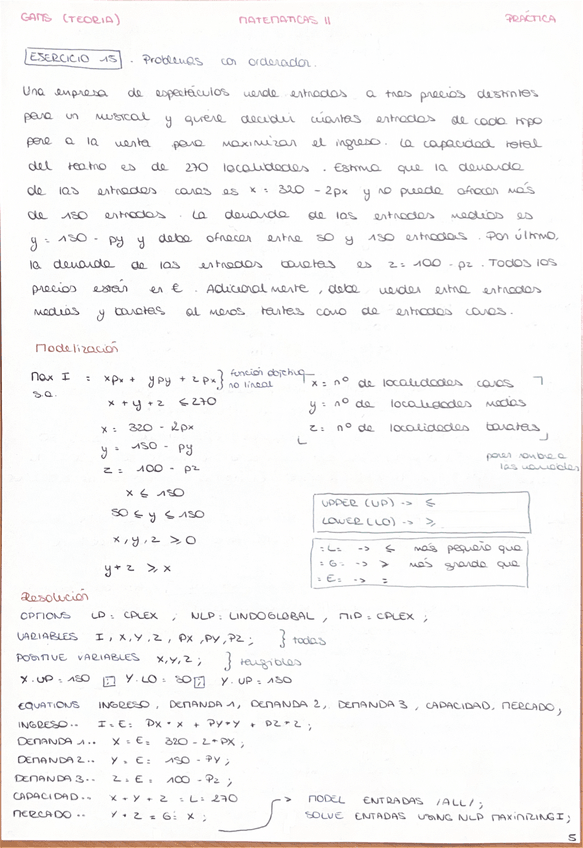 GAMS (TEORIA) MATEMATICAS II PRÁCTICA
EJERCICIO 15 . Problemas con ordenador.
Una empresa de espectáculos vende entradas a tres precios distintos
para un musical y quiere decidir cuantas entradas de cada tipo
pone a la venta para maximizar el ingreso. La capacidad total
del teatro es de 270 localidades. Estima que la demanda
de las entradas caras es x = 320 - 2px y no puede ofrecer más
de 150 entradas. La demanda de las entradas medias es
y = 150 - py y debe ofrecer entre 50 y 150 entradas. Por último,
la demanda de las entradas baratas es z = 100 - pz. Todos los
precios están en €. Adicionalmente, debe vender entre entradas
medias y baratas al menos tantas como de entradas caras.
Modelización
Max I = xpx + ypy + zpx } función objetivo no lineal
s.a.
x + y + z ≤ 270
x = 320 - 2px
y = 150 - py
z = 100 - pz
x ≤ 150
50 ≤ y ≤ 150
x, y, z ≥ 0
y + z ≥ x
x = nº de localidades caras
y = nº de localidades medias
z = nº de localidades baratas
poner nombre a
las variables
UPPER (UP) -> ≤
LOWER (LO) -> ≥
=L= -> ≤ más pequeño que
=G= -> ≥ más grande que
=E= -> =
Resolución
OPTIONS LP = CPLEX , NLP = LINDOGLOBAL , MIP = CPLEX ;
VARIABLES I, X, Y, Z, PX, PY, PZ ; } todas
POSITIVE VARIABLES X, Y, Z ; } tangibles
X.UP = 150 ; Y.LO = 50 ; Y.UP = 150
EQUATIONS INGRESO, DEMANDA 1, DEMANDA 2, DEMANDA 3, CAPACIDAD, MERCADO;
INGRESO.. I =E= PX * X + PY * Y + PZ * Z ;
DEMANDA 1.. X =E= 320 - 2 * PX ;
DEMANDA 2.. Y =E= 150 - PY ;
DEMANDA 3.. Z =E= 100 - PZ ;
CAPACIDAD.. X + Y + Z =L= 270
MERCADO.. Y + Z =G= X ;
-> MODEL ENTRADAS /ALL/ ;
SOLVE ENTADAS USING NLP MAXIMIZING I ;
5